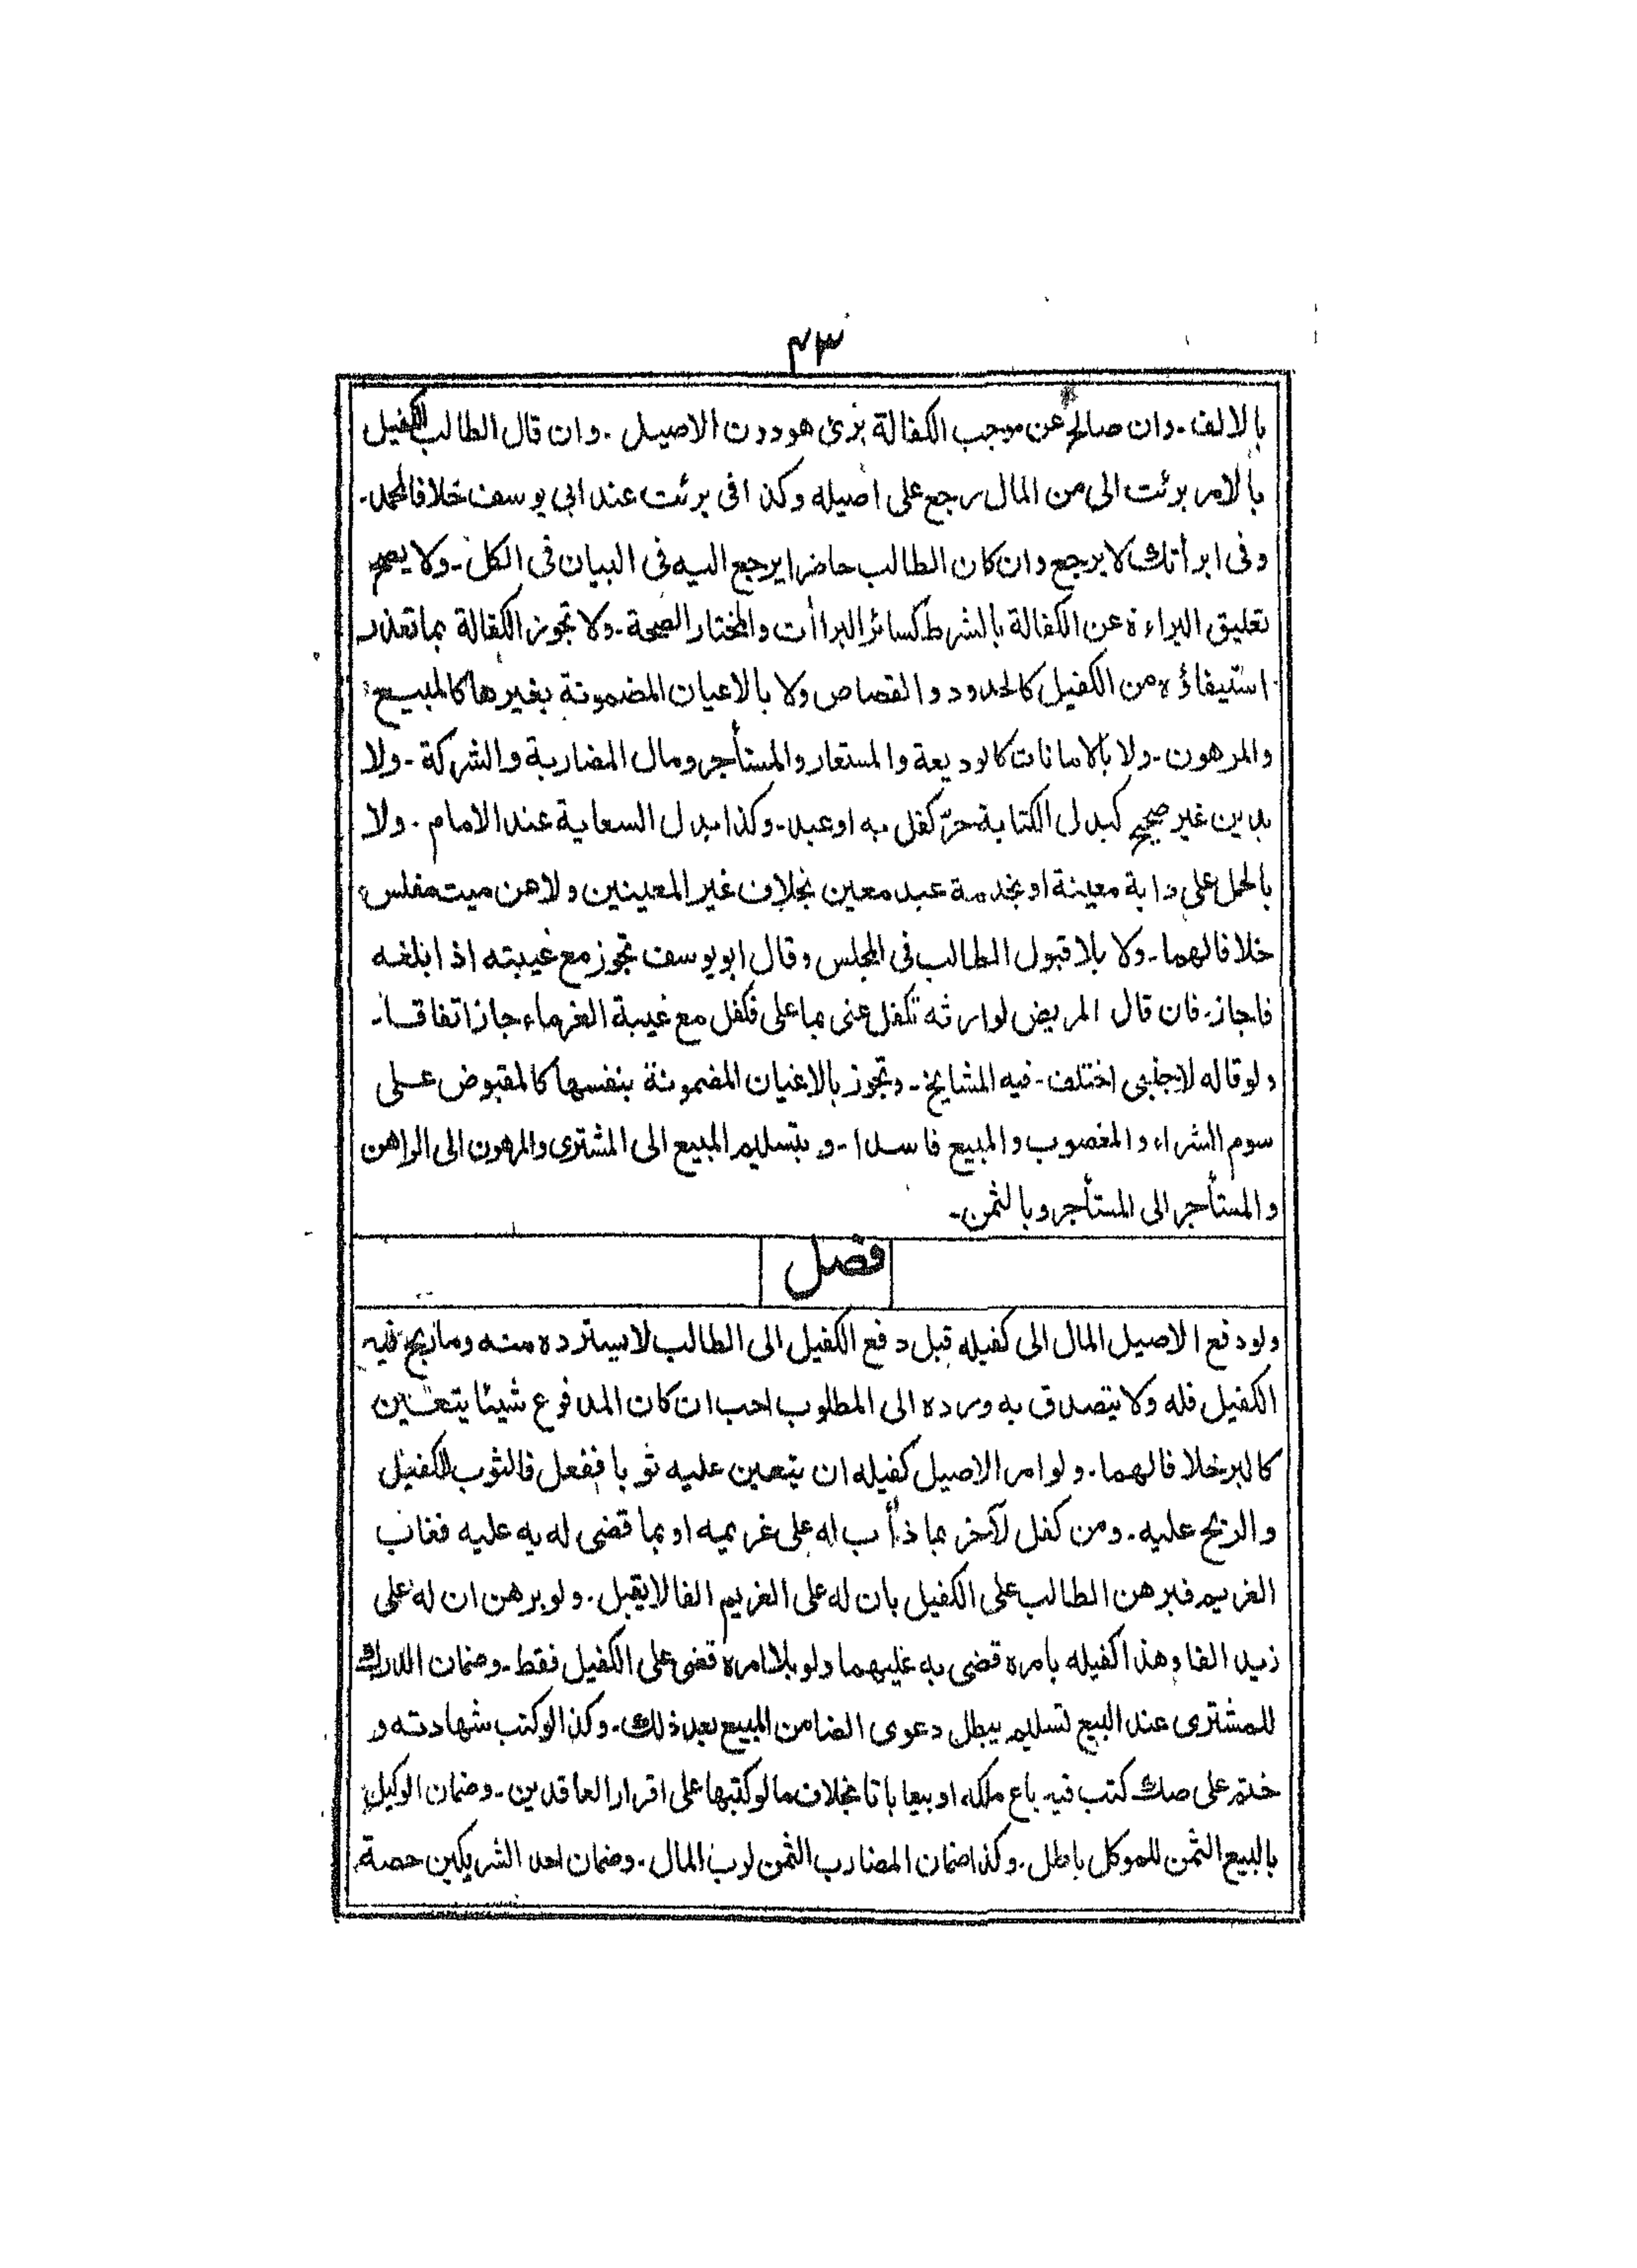 ٤٣
بالالف۔ وان صالح عن موجب الكفالة برئ هو دون الاصيل۔ وان قال الطالب للكفيل
بالامر برئت الى من المال رجع على اصيله وكذا فى برئت عند ابى يوسف خلافا لمحمد۔
وفى ابرأتك لا يرجع وان كان الطالب حاضرا يرجع اليه فى البيان فى الكل۔ ولا يصح
تعليق البراءة عن الكفالة بالشرط كسائر البراأت والمختار الصحة۔ ولا تجوز الكفالة بما تعذر
استيفاؤه من الكفيل كالحدود والقصاص ولا بالاعيان المضمونة بغيرها كالمبيع
والمرهون۔ ولا بالامانات كالوديعة والمستعار والمستأجر ومال المضاربة والشركة۔ ولا
بدين غير صحيح كبدل الكتابة حرّ كفل به او عبد۔ وكذا بدل السعاية عند الامام۔ ولا
بالحمل على دابة معينة او بخدمة عبد معين بخلاف غير المعينين ولا عن ميت مفلس
خلافا لهما۔ ولا بلا قبول الطالب فى المجلس وقال ابو يوسف تجوز مع غيبته اذا بلغه
فاجاز۔ فان قال المريض لوارثه تكفل عنى بما على فكفل مع غيبة الغرماء جاز اتفاقا۔
ولو قاله لاجنبى اختلف۔ فيه المشايخ۔ وتجوز بالاعيان المضمونة بنفسها كالمقبوض على
سوم الشراء والمغصوب والمبيع فاسدا۔ و بتسليم المبيع الى المشترى والمرهون الى الراهن
والمستأجر الى المستأجر وبالثمن۔
فصل
ولو دفع الاصيل المال الى كفيله قبل دفع الكفيل الى الطالب لا يسترده منه وما ربح فيه
الكفيل فله ولا يتصدق به ورده الى المطلوب احب ان كان المدفوع شيئا يتعين
كالبر خلافا لهما۔ ولو امر الاصيل كفيله ان يتعين عليه ثوبا ففعل فالثوب للكفيل
والربح عليه۔ ومن كفل لآخر بما ذأب له على غريمه او بما قضى له به عليه فغاب
الغريم فبرهن الطالب على الكفيل بان له على الغريم الفا لا يقبل۔ ولو برهن ان له على
زيد الفا وهذا كفيله بامره قضى به عليهما ولو بلا امره قضى على الكفيل فقط۔ وضمان الدرك
للمشترى عند البيع تسليم يبطل دعوى الضامن المبيع بعد ذلك۔ وكذا لو كتب شهادته و
ختم على صك كتب فيه باع ملكه او بيعا باتا بخلاف ما لو كتبها على اقرار العاقدين۔ وضمان الوكيل
بالبيع الثمن للموكل باطل۔ وكذا ضمان المضارب الثمن لرب المال۔ وضمان احد الشريكين حصة